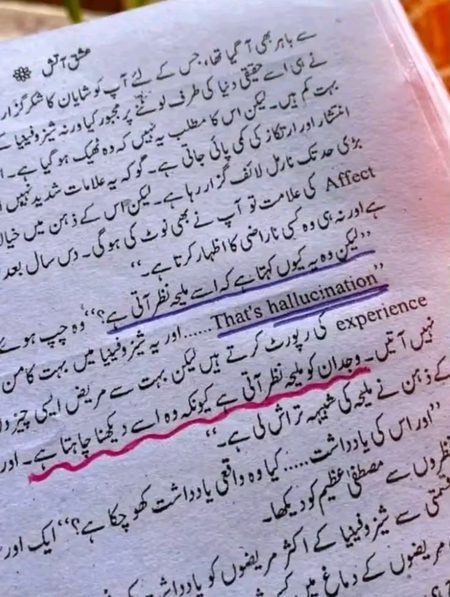 عشق آتش
سے باہر بھی آ گیا تھا، جس کے لئے آپ کو شایان کا شکر گزار
نے ہی اسے حقیقی دنیا کی طرف لوٹنے پر مجبور کیا ورنہ شیزوفینیا کے
بہت کم ہیں۔ لیکن اس کا مطلب یہ نہیں کہ وہ ٹھیک ہو گیا ہے۔
انتشار اور ارتکاز کی کمی پائی جاتی ہے۔ گو کہ یہ علامات شدید نہیں
بڑی حد تک نارمل لائف گزار رہا ہے۔ لیکن اس کے ذہن میں خیال
Affect کی علامت تو آپ نے بھی نوٹ کی ہوگی۔ دس سال بعد
ہے اور نہ ہی وہ کسی ناراضی کا اظہار کرتا ہے۔‘‘
’’لیکن وہ یہ کیوں کہتا ہے کہ اسے ملیحہ نظر آتی ہے؟‘‘ وہ چپ ہوئے
’’That's hallucination...... اور یہ شیزوفینیا میں بہت کامن
experience کی رپورٹ کرتے ہیں لیکن بہت سے مریض ایسی چیز
نہیں آتیں۔ وجدان کو ملیحہ نظر آتی ہے کیونکہ وہ اسے دیکھنا چاہتا ہے۔ اور
کے ذہن نے ملیحہ کی شبیہہ تراش لی ہے۔‘‘
’’اور اس کی یادداشت..... کیا وہ واقعی یادداشت کھو چکا ہے؟‘‘ ایک اور
نظروں سے مصطفیٰ عظیم کو دیکھا۔
قسمتی سے شیزوفینیا کے اکثر مریضوں کو یادداشت
مریضوں کے دماغ میں